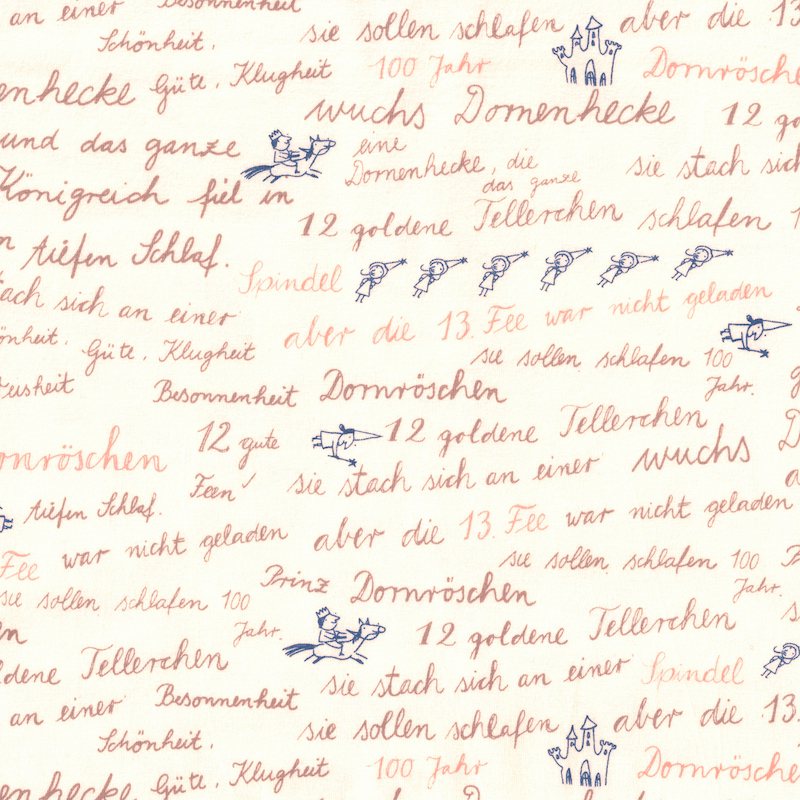 an einer Besonnenheit sie sollen schlafen aber die 13
Schönheit.
enhecke Güte, Klugheit 100 Jahr Dornrösche
wuchs Dornenhecke 12 go
und das ganze eine
Dornenhecke, die sie stach sich
Königreich fiel in das ganze
12 goldene Tellerchen schlafen 1
n tiefen Schlaf.
Spindel
tach sich an einer aber die 13. Fee war nicht geladen
önheit. Güte, Klugheit sie sollen schlafen 100
Jahr.
eisheit Besonnenheit Dornröschen g
onröschen 12 gute 12 goldene Tellerchen
Feen sie stach sich an einer wuchs D
tiefen Schlaf. a
Fee war nicht geladen aber die 13. Fee war nicht geladen
sie sollen schlafen 100 P
Prinz Dornröschen
sie sollen schlafen 100 Jahr.
Jahr.
en 12 goldene Tellerchen s
ldene Tellerchen
sie stach sich an einer Spindel
an einer Besonnenheit sie sollen schlafen aber die 13.
Schönheit.
enhecke Güte, Klugheit 100 Jahr Dornrösche